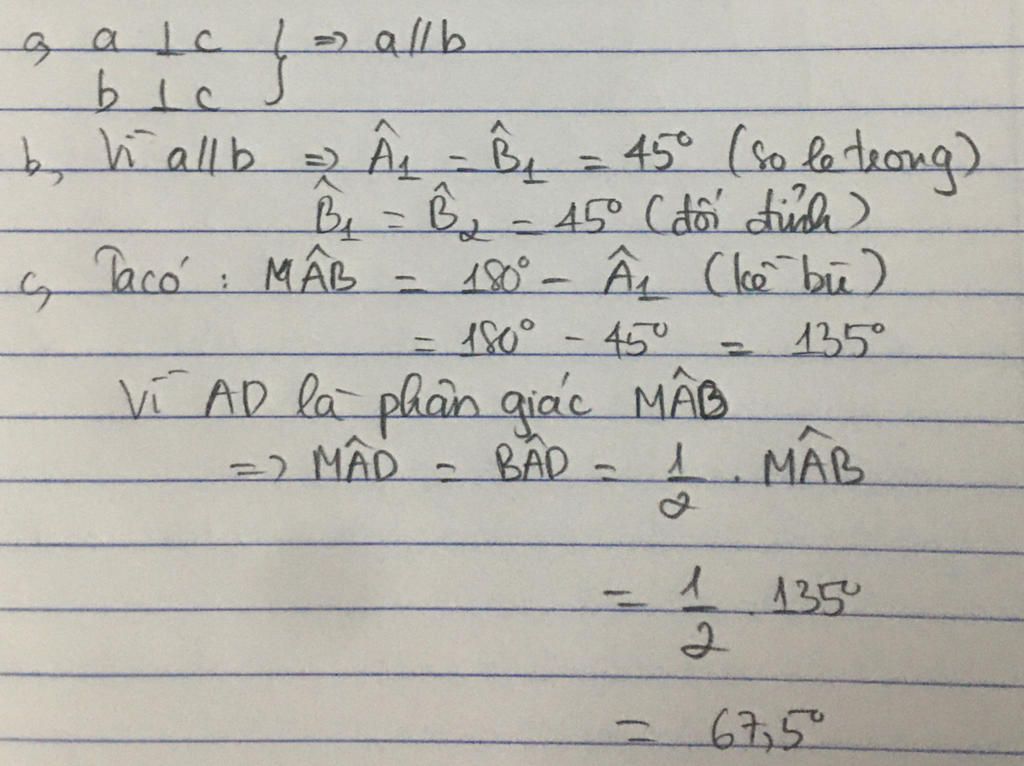 a, a ⊥ c } => a // b
b ⊥ c
b, Vì a // b => Â₁ = B̂₁ = 45° (so le trong)
B̂₁ = B̂₂ = 45° (đối đỉnh)
c, Ta có : MÂB = 180° - Â₁ (kề bù)
= 180° - 45° = 135°
Vì AD là phân giác MÂB
=> MÂD = BÂD = 1/2 . MÂB
= 1/2 . 135°
= 67,5°